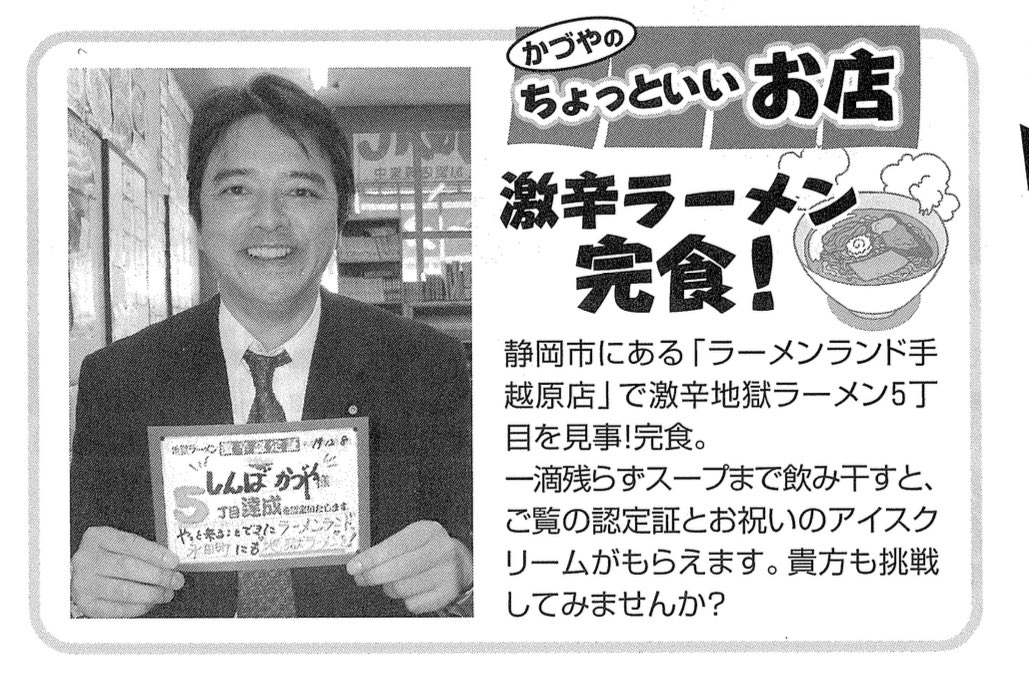 かづやの
ちょっといいお店
激辛ラーメン
完食!
静岡市にある「ラーメンランド手
越原店」で激辛地獄ラーメン5丁
目を見事!完食。
一滴残らずスープまで飲み干すと、
ご覧の認定証とお祝いのアイスク
リームがもらえます。貴方も挑戦
してみませんか?
地獄ラーメン
しんば かづや様
5丁目達成を認定いたします
やっと来ることできたラーメンランド